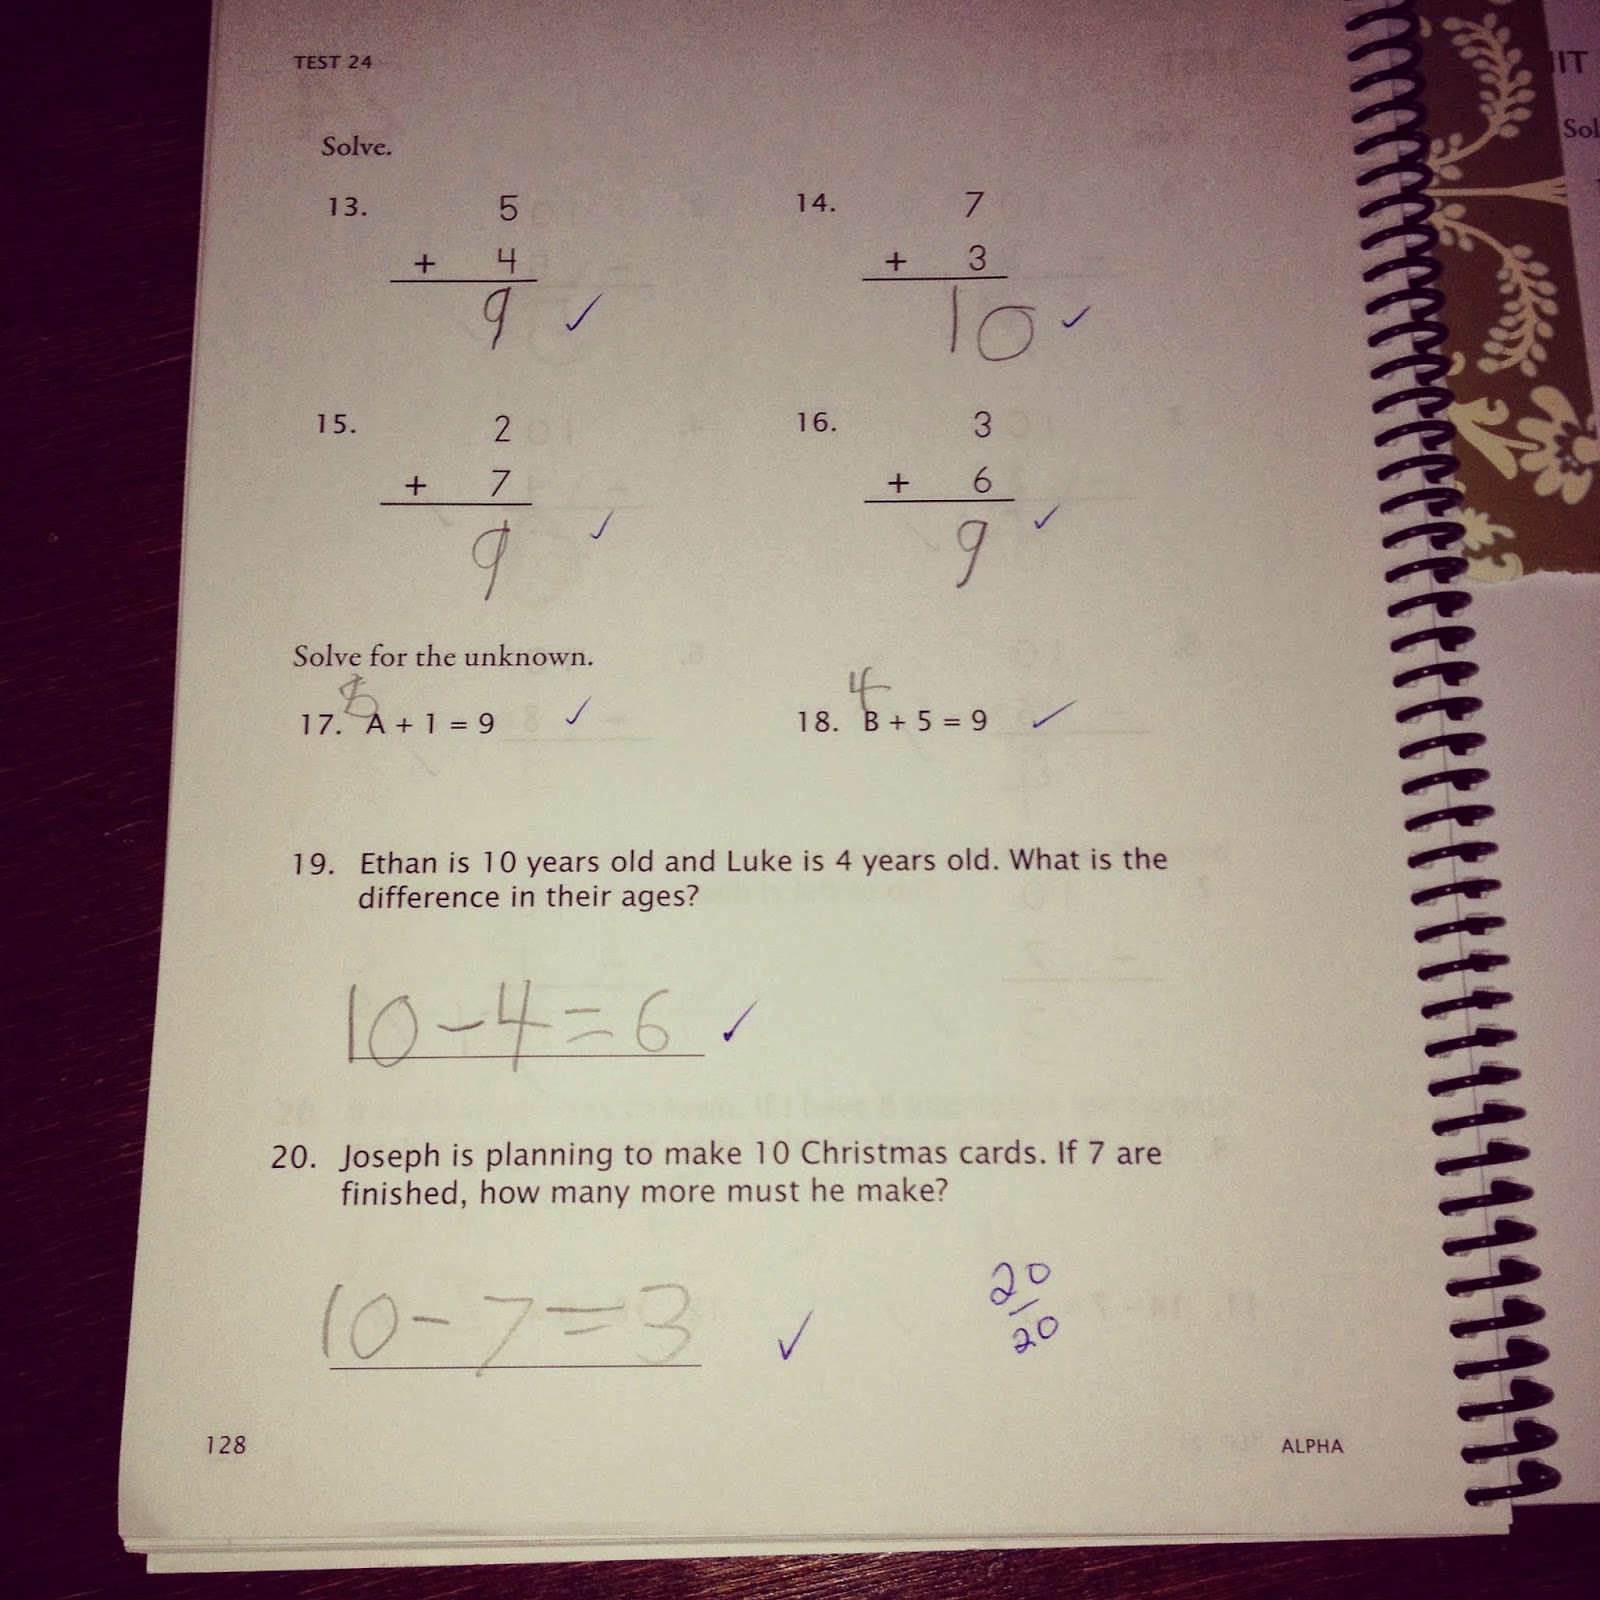 TEST 24
Solve.
13. 5
+ 4
9 ✓
14. 7
+ 3
10 ✓
15. 2
+ 7
9 ✓
16. 3
+ 6
9 ✓
Solve for the unknown.
8
17. A + 1 = 9 ✓
4
18. B + 5 = 9 ✓
19. Ethan is 10 years old and Luke is 4 years old. What is the
difference in their ages?
10 - 4 = 6 ✓
20. Joseph is planning to make 10 Christmas cards. If 7 are
finished, how many more must he make?
10 - 7 = 3 ✓
20
20
128
ALPHA
IT
Sol